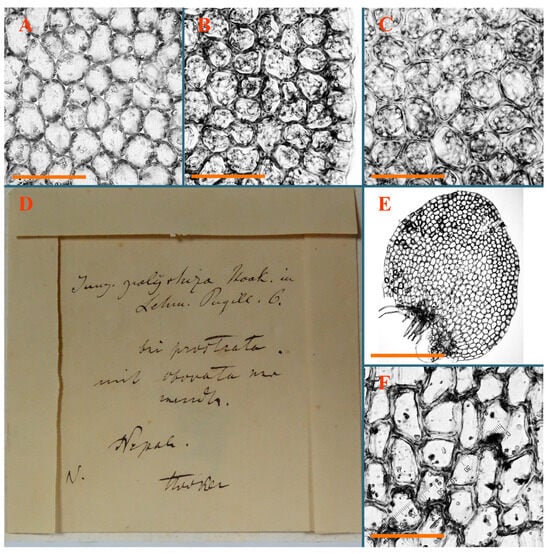 A
B
C
D
Jung. polyrhiza Hook. in
Lehm. Pugill. 6.
bei prostrata.
mit obovata
Nepal.
N.
Hooker
E
F